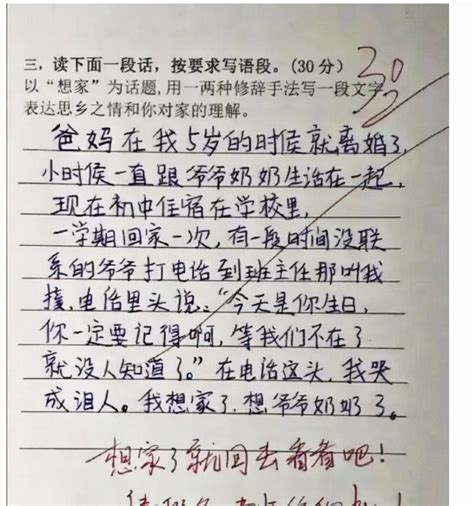 三，读下面一段话，按要求写语段。(30分)
30
以“想家”为话题,用一两种修辞手法写一段文字
表达思乡之情和你对家的理解。
爸妈在我5岁的时候就离婚了,
小时候一直跟爷爷奶奶生活在一起,
现在初中住宿在学校里,
一学期回家一次,有一段时间没联
系的爷爷打电话到班主任那叫我
接,电话里头说:“今天是你生日,
你一定要记得啊,等我们不在了
就没人知道了。”在电话这头,我哭
成泪人。我想家了,想爷爷奶奶了。
想家了就回去看看吧!